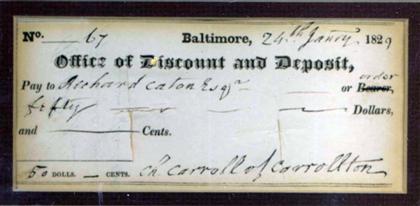 No. — 67 Baltimore, 24th Jany 1829
Office of Discount and Deposit,
Pay to Richard Caton Esqr or Bearer, order
fifty Dollars,
and Cents.
50 DOLLS. — CENTS. Ch Carroll of Carrollton